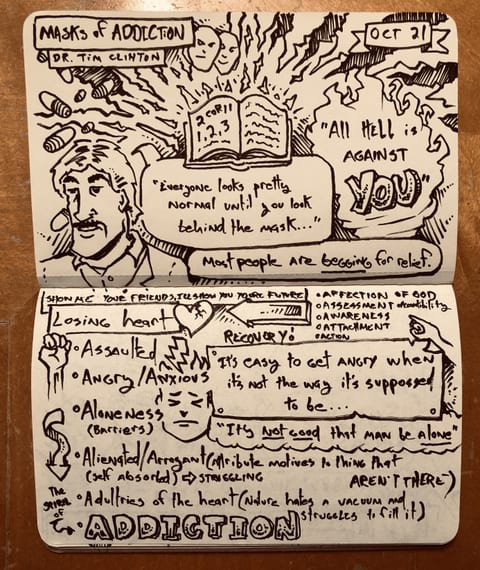 MASKS of ADDICTION
DR. TIM CLINTON
OCT 21
2 COR 11
1, 2, 3
"All Hell is
AGAINST
YOU"
"Everyone looks pretty
normal until you look
behind the mask..."
Most people are begging for relief.
SHOW ME YOUR FRIENDS, I'LL SHOW YOU YOUR FUTURE
Losing heart
RECOVERY!
AFFECTION OF GOD
ASSESSMENT
AWARENESS
ATTACHMENT
ACTION
Assaulted
Angry/Anxious
Aloneness
(Barriers)
"It's easy to get angry when
it's not the way it's suppossed
to be...
"It's Not Good that man be alone"
Alienated/Arrogant (attribute motives to thing that
AREN'T THERE)
(self absorbed) ⇨ STRUGGLING
Adultries of the heart (Nature hates a vacuum and
struggles to fill it)
The
of
ADDICTION